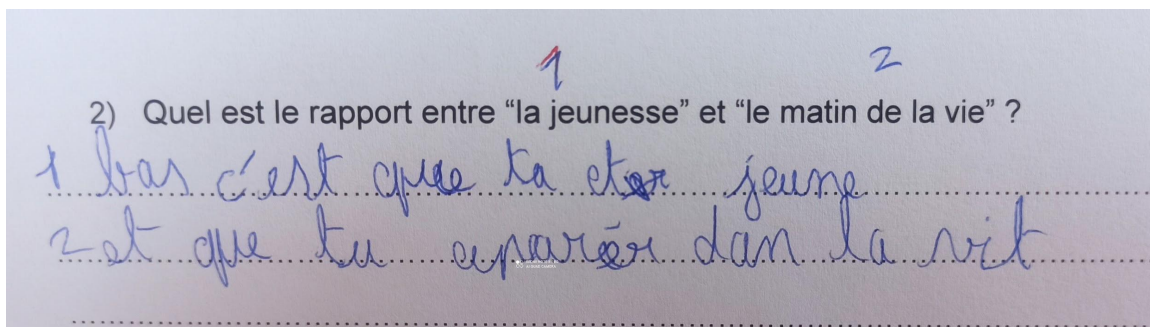 1 2
2) Quel est le rapport entre “la jeunesse” et “le matin de la vie” ?
1 bas c'est que ta eter jeune
2 et que tu aparèr dan la vit